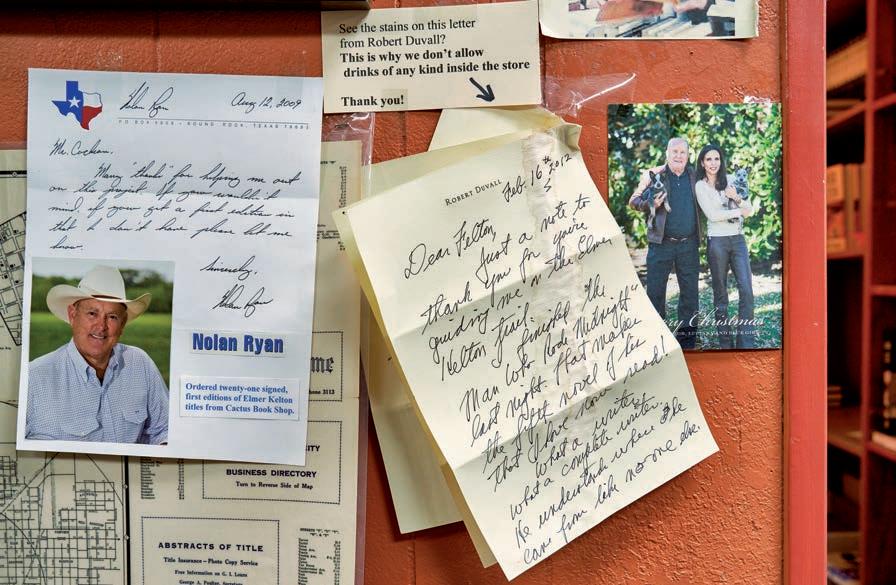 See the stains on this letter
from Robert Duvall?
This is why we don't allow
drinks of any kind inside the store
Thank you!
Nolan Ryan
Aug 12, 2009
ROUND ROCK, TEXAS
Mr. Cochran,
Many "thanks" for helping me out
on the project. If you wouldn't
mind, if you get a first edition in
that I don't have please let me
know.
Sincerely,
Nolan Ryan
Nolan Ryan
Ordered twenty-one signed,
first editions of Elmer Kelton
titles from Cactus Book Shop.
ROBERT DUVALL
Feb. 16th 2012
Dear Felton,
Just a note to
thank you for you're
guiding me on the Elmer
Kelton trail.
I finished "The
Man Who Rode Midnight"
last night. That makes
the fifth novel of his
that I have now read!
What a writer
what a complete writer.
He understands where he
came from like no one else.
ry Christmas
me
Phone 3113
CITY
BUSINESS DIRECTORY
Turn to Reverse Side of Map
ABSTRACTS OF TITLE
Title Insurance – Photo Copy Service
Free Information on G. I. Loans